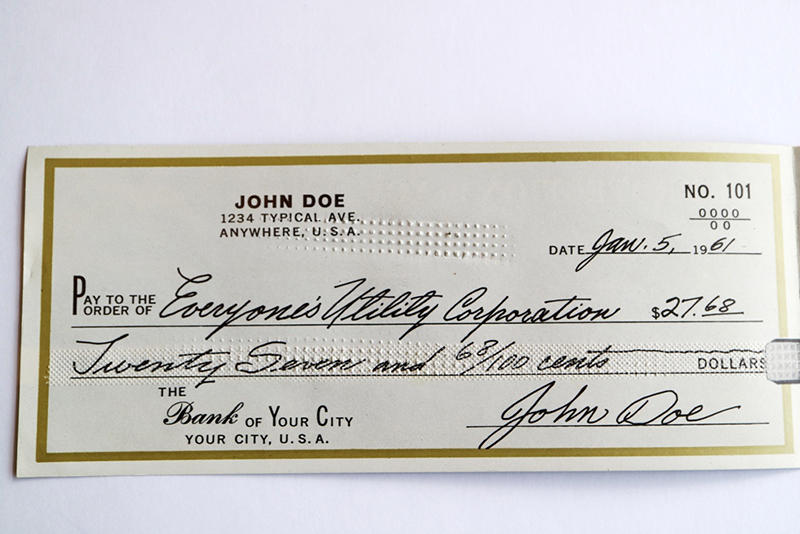 JOHN DOE
1234 TYPICAL AVE.
ANYWHERE, U.S.A.
NO. 101
0000
00
DATE Jan. 5, 1961
PAY TO THE
ORDER OF Everyone's Utility Corporation $27.68
Twenty Seven and 68/100 cents DOLLARS
THE
Bank OF YOUR CITY
YOUR CITY, U.S.A.
John Doe